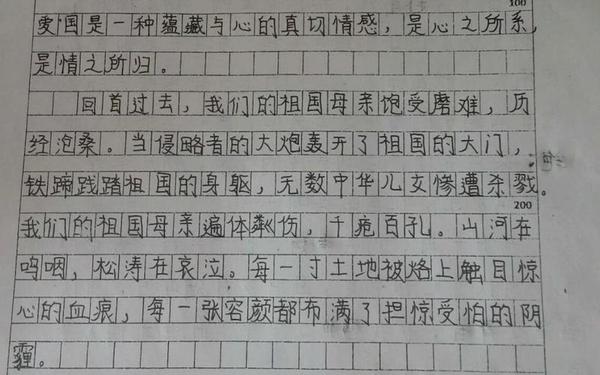 100
爱国是一种蕴藏与心的真切情感，是心之所系，
是情之所归。
回首过去，我们的祖国母亲饱受磨难，历
经沧桑。当侵略者的大炮轰开了祖国的大门，
铁蹄践踏祖国的身躯，无数中华儿女惨遭杀戮。
200
我们的祖国母亲遍体伤，千疮百孔。山河在
呜咽，松涛在哀泣。每一寸土地被烙上触目惊
心的血痕，每一张容颜都布满了担惊受怕的阴
霾。